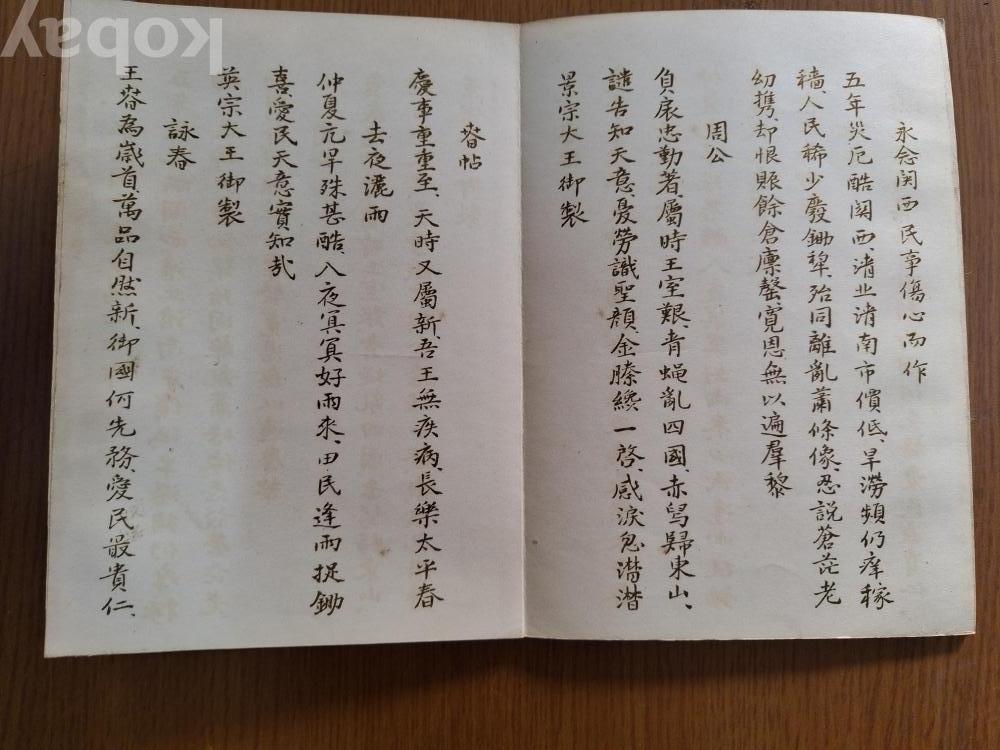 永念関西民事傷心而作
五年災厄酷関西、清北清南市價低、旱澇頻仍痒稼
穡、人民稀少廢鋤犂、殆同離亂蕭條像、忍說蒼茫老
幼携、却恨賑餘倉廪罄、寬恩無以遍羣黎
周公
負扆忠勤著、屬時王室艱、青蝿亂四國、赤舄歸東山、
譴告知天意、憂勞識聖顔、金縢纔一啓、感淚忽潸潸
景宗大王御製
春帖
慶事重重至、天時又屬新、吾王無疾病、長樂太平春
去夜灑雨
仲夏亢旱殊甚酷、入夜冥冥好雨來、田民逢雨捉鋤
喜、愛民天意實知哉
英宗大王御製
詠春
王春為歲首萬品自然新、御國何先務、愛民最貴仁、
kobay